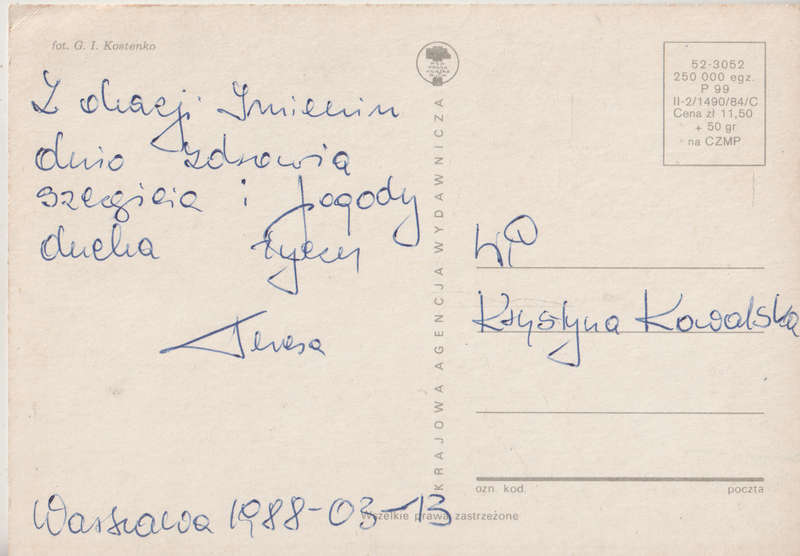 fot. G. I. Kostenko
Z okazji Imienin
dużo zdrowia
szczęścia i pogody
ducha życzy
Teresa
Warszawa 1988-03-13
KRAJOWA AGENCJA WYDAWNICZA
52-3052
250 000 egz.
P 99
II-2/1490/84/C
Cena zł 11,50
+ 50 gr
na CZMP
WP
Krystyna Kowalska
ozn. kod. poczta
Wszelkie prawa zastrzeżone